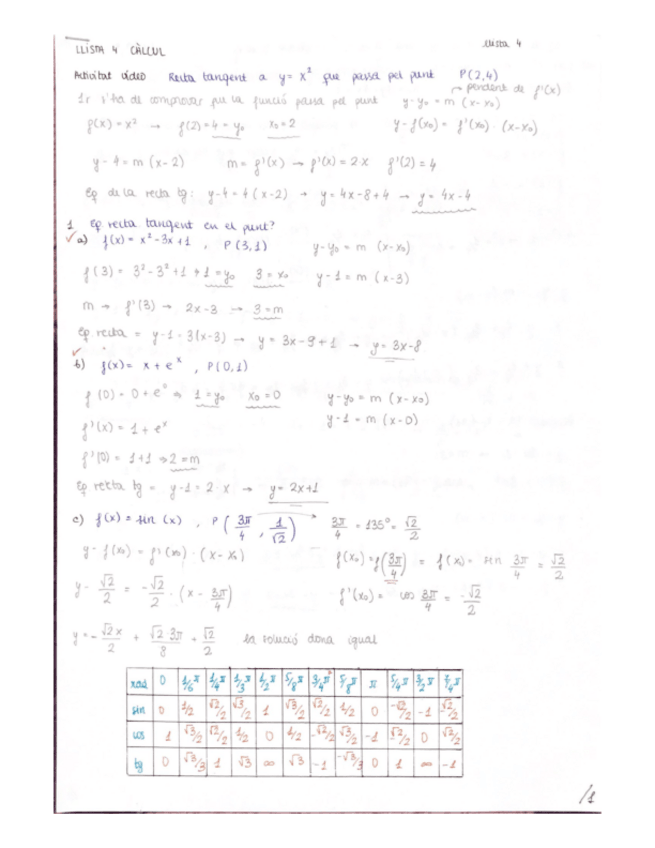 LLISTA 4 CÀLCUL
llista 4
Activitat vídeo Recta tangent a y = x² que passa pel punt P(2,4)
→ pendent de f'(x)
1r s'ha de comprovar que la funció passa pel punt y-y₀ = m (x-x₀)
f(x) = x² → f(2) = 4 = y₀ x₀ = 2 y-f(x₀) = f'(x₀) · (x-x₀)
y-4 = m (x-2) m = f'(x) → f'(x) = 2·x f'(2) = 4
Eq de la recta tg: y-4 = 4 (x-2) → y = 4x-8+4 → y = 4x-4
1 Eq recta tangent en el punt?
✓ a) f(x) = x²-3x+1 , P(3,1) y-y₀ = m (x-x₀)
f(3) = 3²-3²+1 → 1 = y₀ 3 = x₀ y-1 = m (x-3)
m → f'(3) → 2x-3 → 3 = m
Eq recta = y-1 = 3(x-3) → y = 3x-9+1 → y = 3x-8
✓ b) f(x) = x + eˣ , P(0,1)
f(0) = 0 + e⁰ → 1 = y₀ x₀ = 0 y-y₀ = m (x-x₀)
f'(x) = 1 + eˣ y-1 = m (x-0)
f'(0) = 1+1 → 2 = m
Eq recta tg = y-1 = 2·x → y = 2x+1
c) f(x) = sin (x) , P (3π/4 , 1/√2) 3π/4 = 135° = √2/2
y-f(x₀) = f'(x₀) · (x-x₀) f(x₀) = f(3π/4) = f(x) = sin 3π/4 = √2/2
y - √2/2 = -√2/2 · (x - 3π/4) f'(x₀) = cos 3π/4 = -√2/2
y = -√2x/2 + √2·3π/8 + √2/2 la solució dona igual
rad 0 1/6 π 1/4 π 1/3 π 1/2 π 5/8 π 3/4 π 5/8 π π 5/4 π 3/2 π 7/4 π
sin 0 1/2 √2/2 √3/2 1 √3/2 √2/2 1/2 0 -√2/2 -1 √2/2
cos 1 √3/2 √2/2 1/2 0 1/2 -√2/2 √3/2 -1 √2/2 0 √2/2
tg 0 √3/3 1 √3 ∞ √3 -1 -√3/3 0 1 ∞ -1
/1